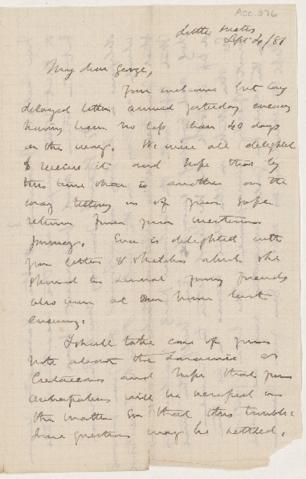 ACC. 276
Little Metis,
Sept 4/88
My dear George,
Your welcome but long
delayed letter arrived yesterday evening
having been no less than 40 days
on the way. We were all delighted
to receive it and hope that by
this time there is another on the
way telling us of your safe
return from your
journey. Eva is delighted with
your letter & sketches which she
showed to several young friends
who were at our house last
evening.
I shall take care of your
note about the Laramie or
Cretaceous and hope that your
anticipations will be verified in
this matter so that this trouble-
some question may be settled.